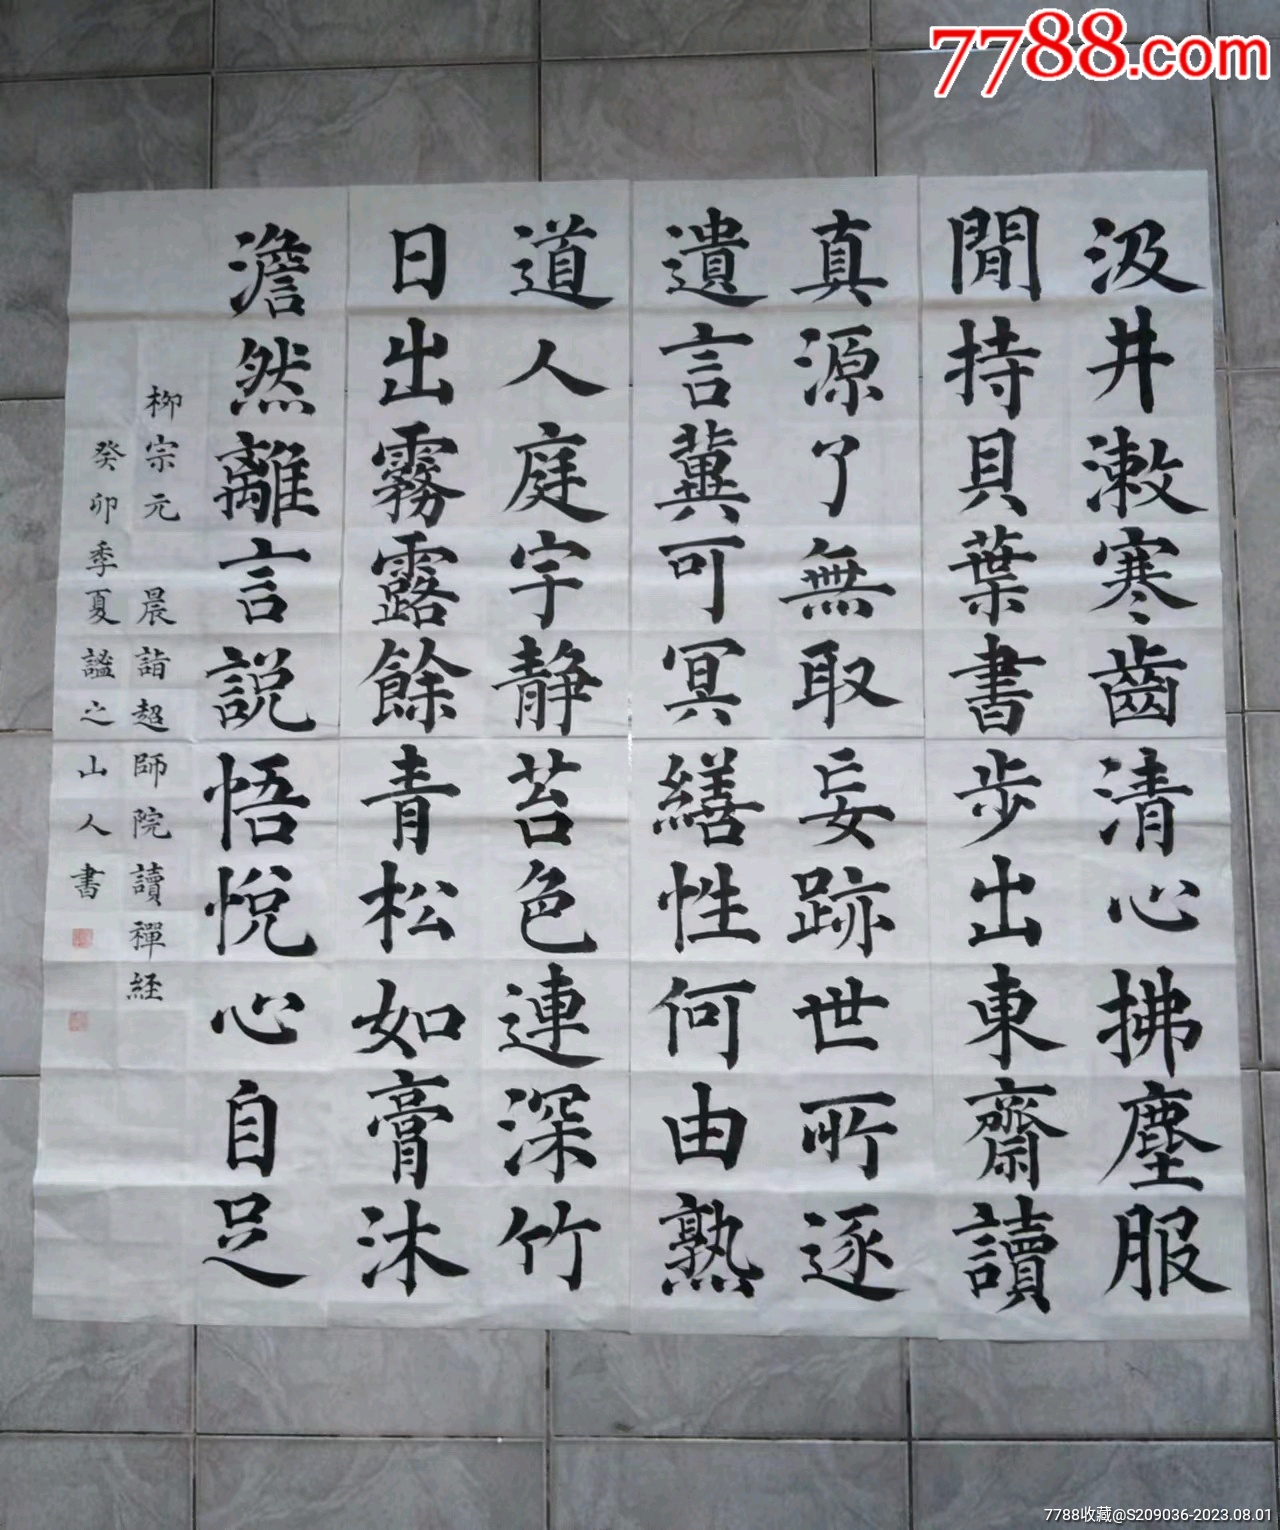 7788.com
汲井漱寒齒清心拂塵服
閒持貝葉書步出東齋讀
真源了無取妄跡世所逐
遺言冀可冥繕性何由熟
道人庭宇静苔色連深竹
日出霧露餘青松如膏沐
澹然離言説悟悅心自足
柳宗元 晨詣超師院讀禪経
癸卯季夏謐之山人書
7788收藏@S209036-2023.08.01